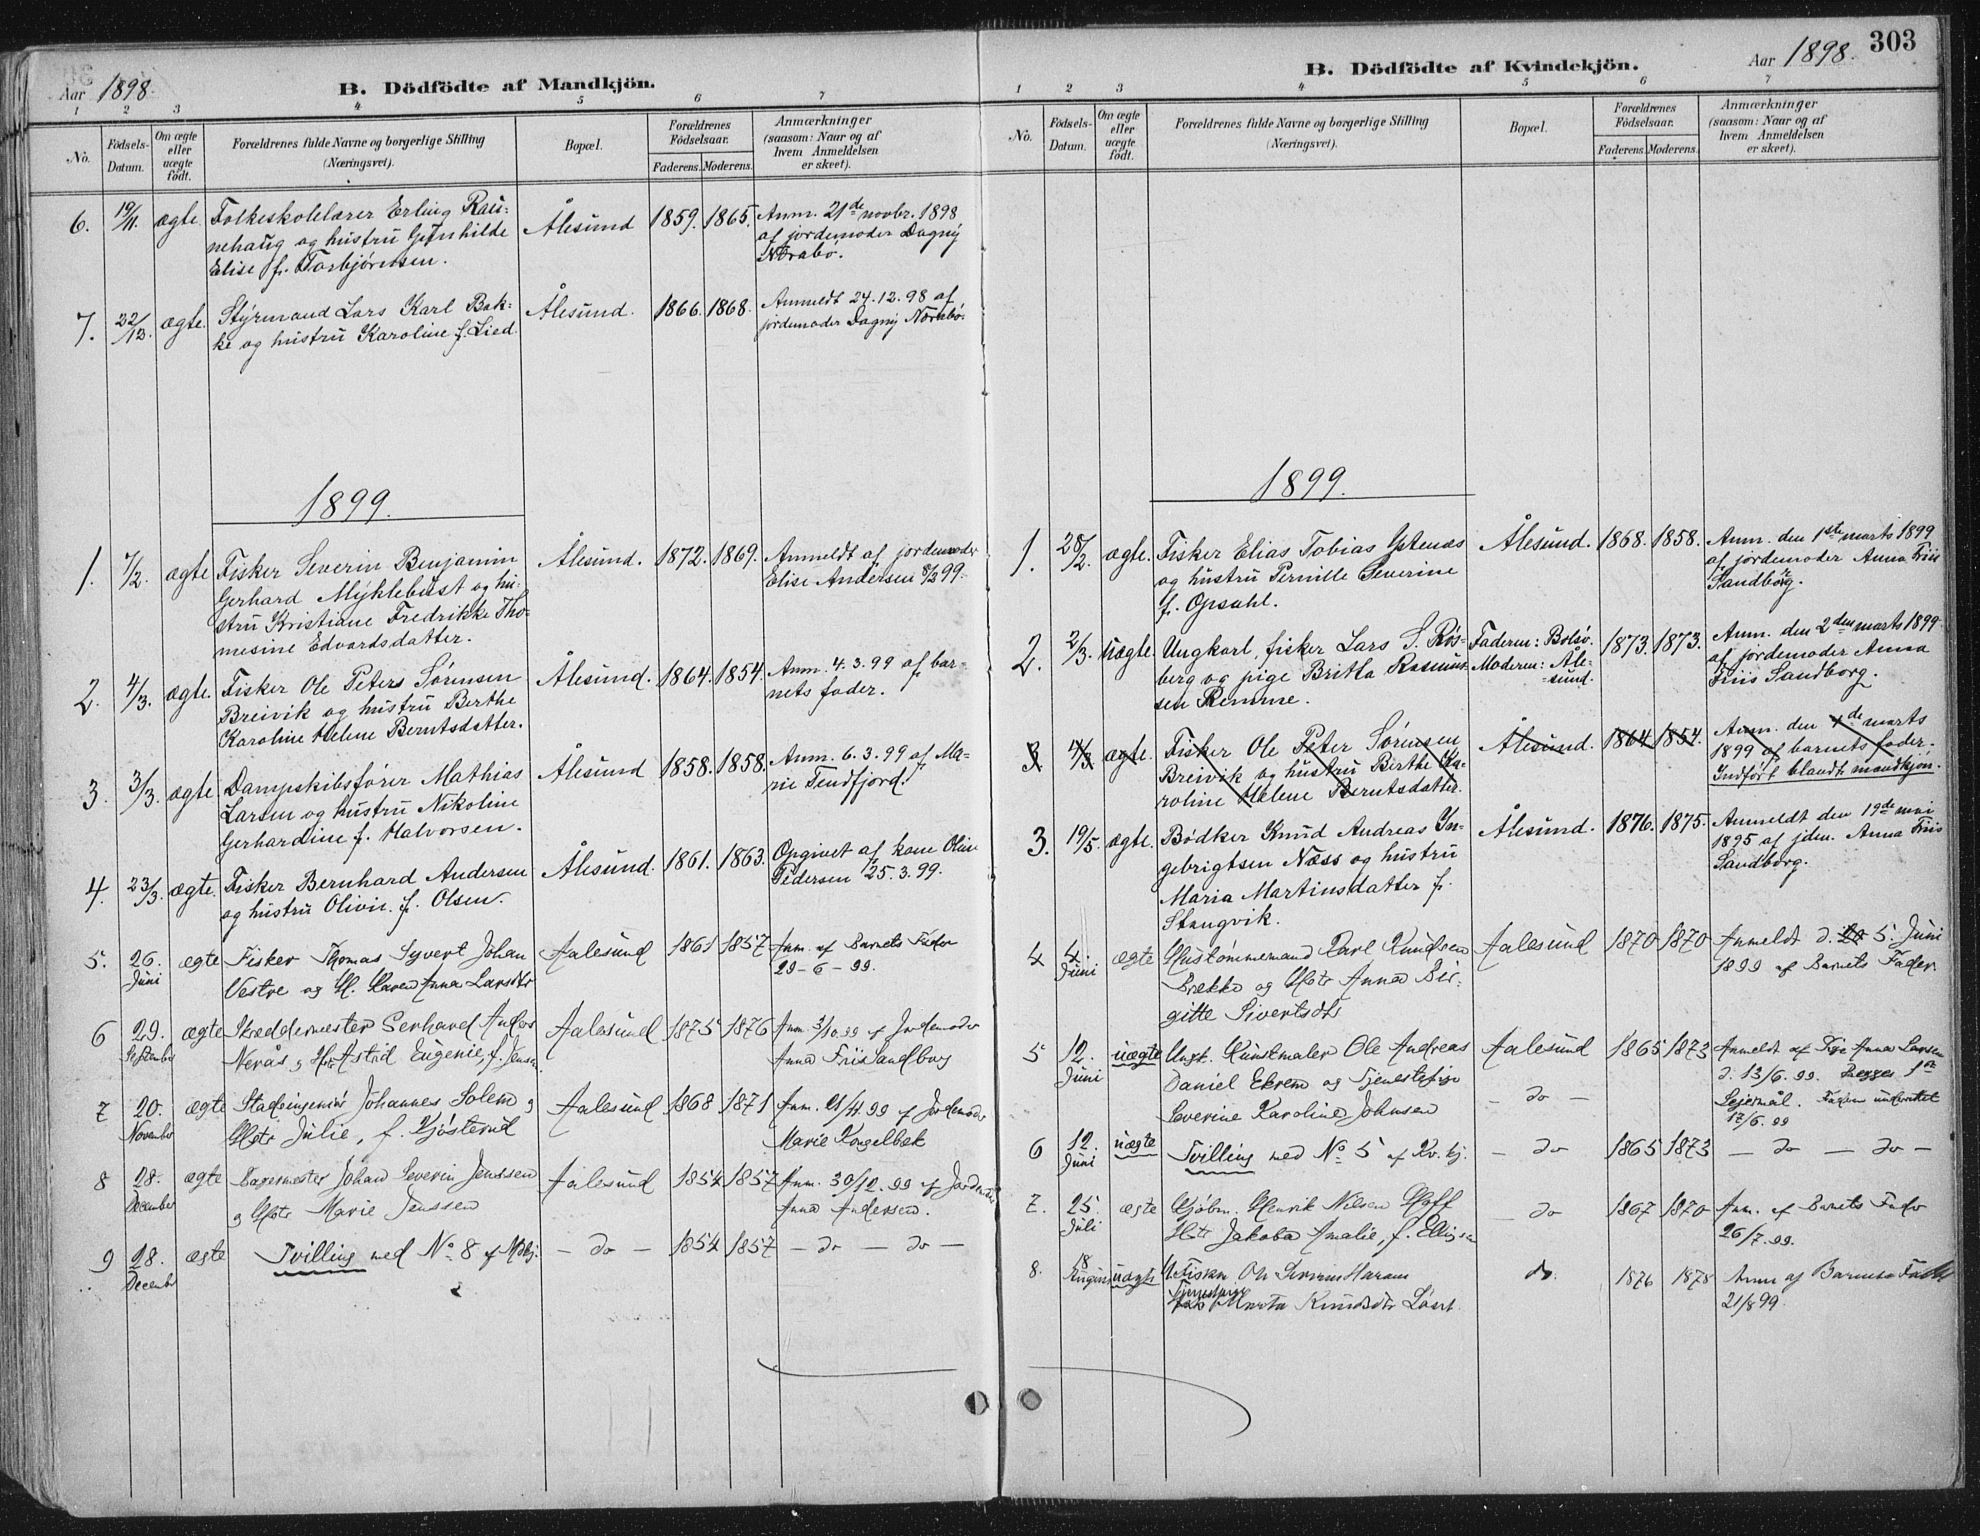 Aar 1898.
B. Dödfödte af Mandkjön.
1 2 3 4 5 6 7
No.
Födsels-Datum.
Om ægte eller uægte födt.
Forældrenes fulde Navne og borgerlige Stilling
(Næringsvei).
Bopæl.
Forældrenes Födselsaar.
Faderens. Moderens.
Anmærkninger
(saasom: Naar og af
hvem Anmeldelsen
er skeet).
6. 19/11. ægte. Folkeskolelærer Erling Rau- Ålesund 1859. 1865. Anm. 21de novbr. 1898
nehaug og hustru Gunhilde af jordemoder Dagny
Elise f. Torbjørnsen. Nørabø.
7. 22/12. ægte. Styrmand Lars Karl Bak- Ålesund. 1866. 1868. Anmeldt 24.12.98 af
ke og hustru Karoline f. Lied jordemoder Dagny Nørabø.
1899.
1. 7/2. ægte Fisker Severin Benjamin Ålesund. 1872. 1869. Anmeldt af jordemoder
Gerhard Myklebust og hu- Elise Andersen 8/2 99.
stru Kristiane Fredrikke Tho-
mesine Edvardsdatter.
2. 4/3. ægte. Fisker Ole Peters Sørensen Ålesund. 1864. 1854. Anm. 4.3.99 af bar-
Breivik og hustru Berthe nets fader.
Karoline Helene Berntsdatter.
3. 3/3. ægte Dampskibsfører Mathias Ålesund 1858. 1858. Anm. 6.3.99 af Ma-
Larsen og hustru Nikoline rie Tendfjord.
Gerhardine f. Halvorsen.
4. 23/3. ægte. Fisker Bernhard Andersen Ålesund. 1861. 1863. Opgivet af kone Oline
og hustru Olivie f. Olsen. Pedersen 25.3.99.
5. 26. Juni ægte Fisker Thomas Syvert Johan Aalesund 1861 1857 Anm. af Barnets Fader
Vestre og H. Karen Anna Larsdtr 29-6-99.
6 29. September ægte Skræddermester Gerhard Anders Aalesund 1875 1876 Anm. 3/10 99 af Jordemoder
Nerås, Hstr Astrid Eugenie, f. Jensen. Anna Friis Sandborg
7 20. November ægte Stadsingeniør Johannes Solem Aalesund 1868 1871 Anm. 21/11 99 af Jordemoder
Hstr Julie, f. Kjøsterud Marie Kongelbek
8 28. December ægte Bagermester Johan Severin Jenssen Aalesund 1854 1857 Anm. 30/12. 99 af Jordemoder
Hstr Marie Jenssen Anna Andersen.
9 28. December ægte Tvilling med No. 8 af Mdkj. - do - 1854 1857 - do - do -
303
B. Dödfödte af Kvindekjön.
Aar 1898.
1 2 3 4 5 6 7
No.
Födsels-Datum.
Om ægte eller uægte födt.
Forældrenes fulde Navne og borgerlige Stilling
(Næringsvei).
Bopæl.
Forældrenes Födselsaar.
Faderens. Moderens.
Anmærkninger
(saasom: Naar og af
hvem Anmeldelsen
er skeet).
1899.
1. 28/2. ægte. Fisker Elias Tobias Ystenæs Ålesund. 1868. 1858. Anm. den 1ste marts 1899
og hustru Pernille Severine af jordemoder Anna Friis
f. Opsahl. Sandborg.
2. 2/3. uægte. Ungkarl, fisker Lars S. Røs- Faderen: Bolsø. 1873. 1873. Anm. den 2den marts 1899
berg og pige Britta Rasmus- Moderen: Åle- af jordemoder Anna
sen Remme. sund. Friis Sandborg.
3 4/3 ægte. Fisker Ole Peter Sørensen Ålesund. 1864 1854. Anm. den 4de marts
Breivik og hustru Berthe Ka- 1899 af barnets fader.
roline Helene Berntsdatter. Indført blandt mandkjøn.
3. 19/5. ægte. Bødker Knud Andreas In- Ålesund. 1876. 1875. Anmeldt den 19de mai
gebrigtsen Næss og hustru 1895 af jdm. Anna Friis
Maria Martinsdatter f. Sandborg.
Stangvik.
4 4. Juni ægte Hustømmermand Karl Knudsen Aalesund 1870 1870 Anmeldt d. 5. Juni
Brekke og Hstr Anna Bir- 1899 af Barnets Fader
gitte Sivertsdtr
5 12. Juni uægte Ungk. Kunstmaler Ole Andreas Aalesund 1865 1873 Anmeldt af Pige Anna Larsen
Daniel Ekrem og Tjenestepige d. 13/6. 99. Begges 1ste
Severine Karoline Johnsen - do - Lejermål. Faderen underrettet
17/6. 99
6 12. Juni uægte Tvilling med No. 5 af Kv. kj. - do 1865 1873 - do - do -
7. 25. Juli ægte Kjøbm. Henrik Nilsen Hoff - do 1867 1870 Anm. af Barnets Fader
Hstr Jakoba Amalie, f. Ellingsen 26/7. 99.
8. 18 August uægte Fisker Ole Haram do. 1876 1878 Anm af Barnets Fader
Tjenestepige Marta Knudsdtr 21/8 99.